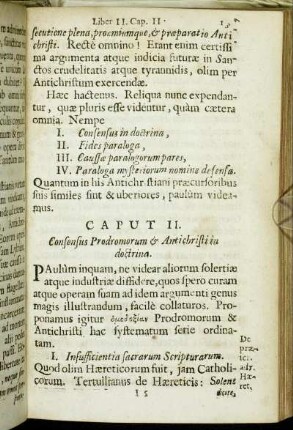 Liber II. Cap. II.
secutione plena, procmiumque, & præparatio Anti
christi. Rectè omnino! Erant enim certissi
ma argumenta atque indicia futuræ in San-
ctos crudelitatis atque tyrannidis, olim per
Antichristum exercendæ.
Hæc hactenus. Reliqua nunc expendan-
tur, quæ pluris esse videntur, quàm cætera
omnia. Nempe
I. Consensus in doctrina,
II. Fides paraloga,
III. Caussæ paralogorum pares,
IV. Paraloga mysteriorum nomine defensa.
Quantum in his Antichr stiani præcursoribus
suis similes sint & uberiores, paulùm videa-
mus.
CAPUT II.
Consensus Prodromorum & Antichristi in
doctrina.
Paulùm inquam, ne videar aliorum solertiæ
atque industriæ diffidere, quos spero curam
atque operam suam ad idem argumenti genus
magis illustrandum, facilè collaturos. Pro-
ponamus igitur Prodromorum &
Antichristi hac systematum serie ordina-
tam.
De
præ-
I. Insufficientia sacrarum Scripturarum.
Quod olim Hæreticorum fuit, jam Catholi-
corum. Tertullianus de Hæreticis: Solent
adv.
Hæ-
ret.
I 5